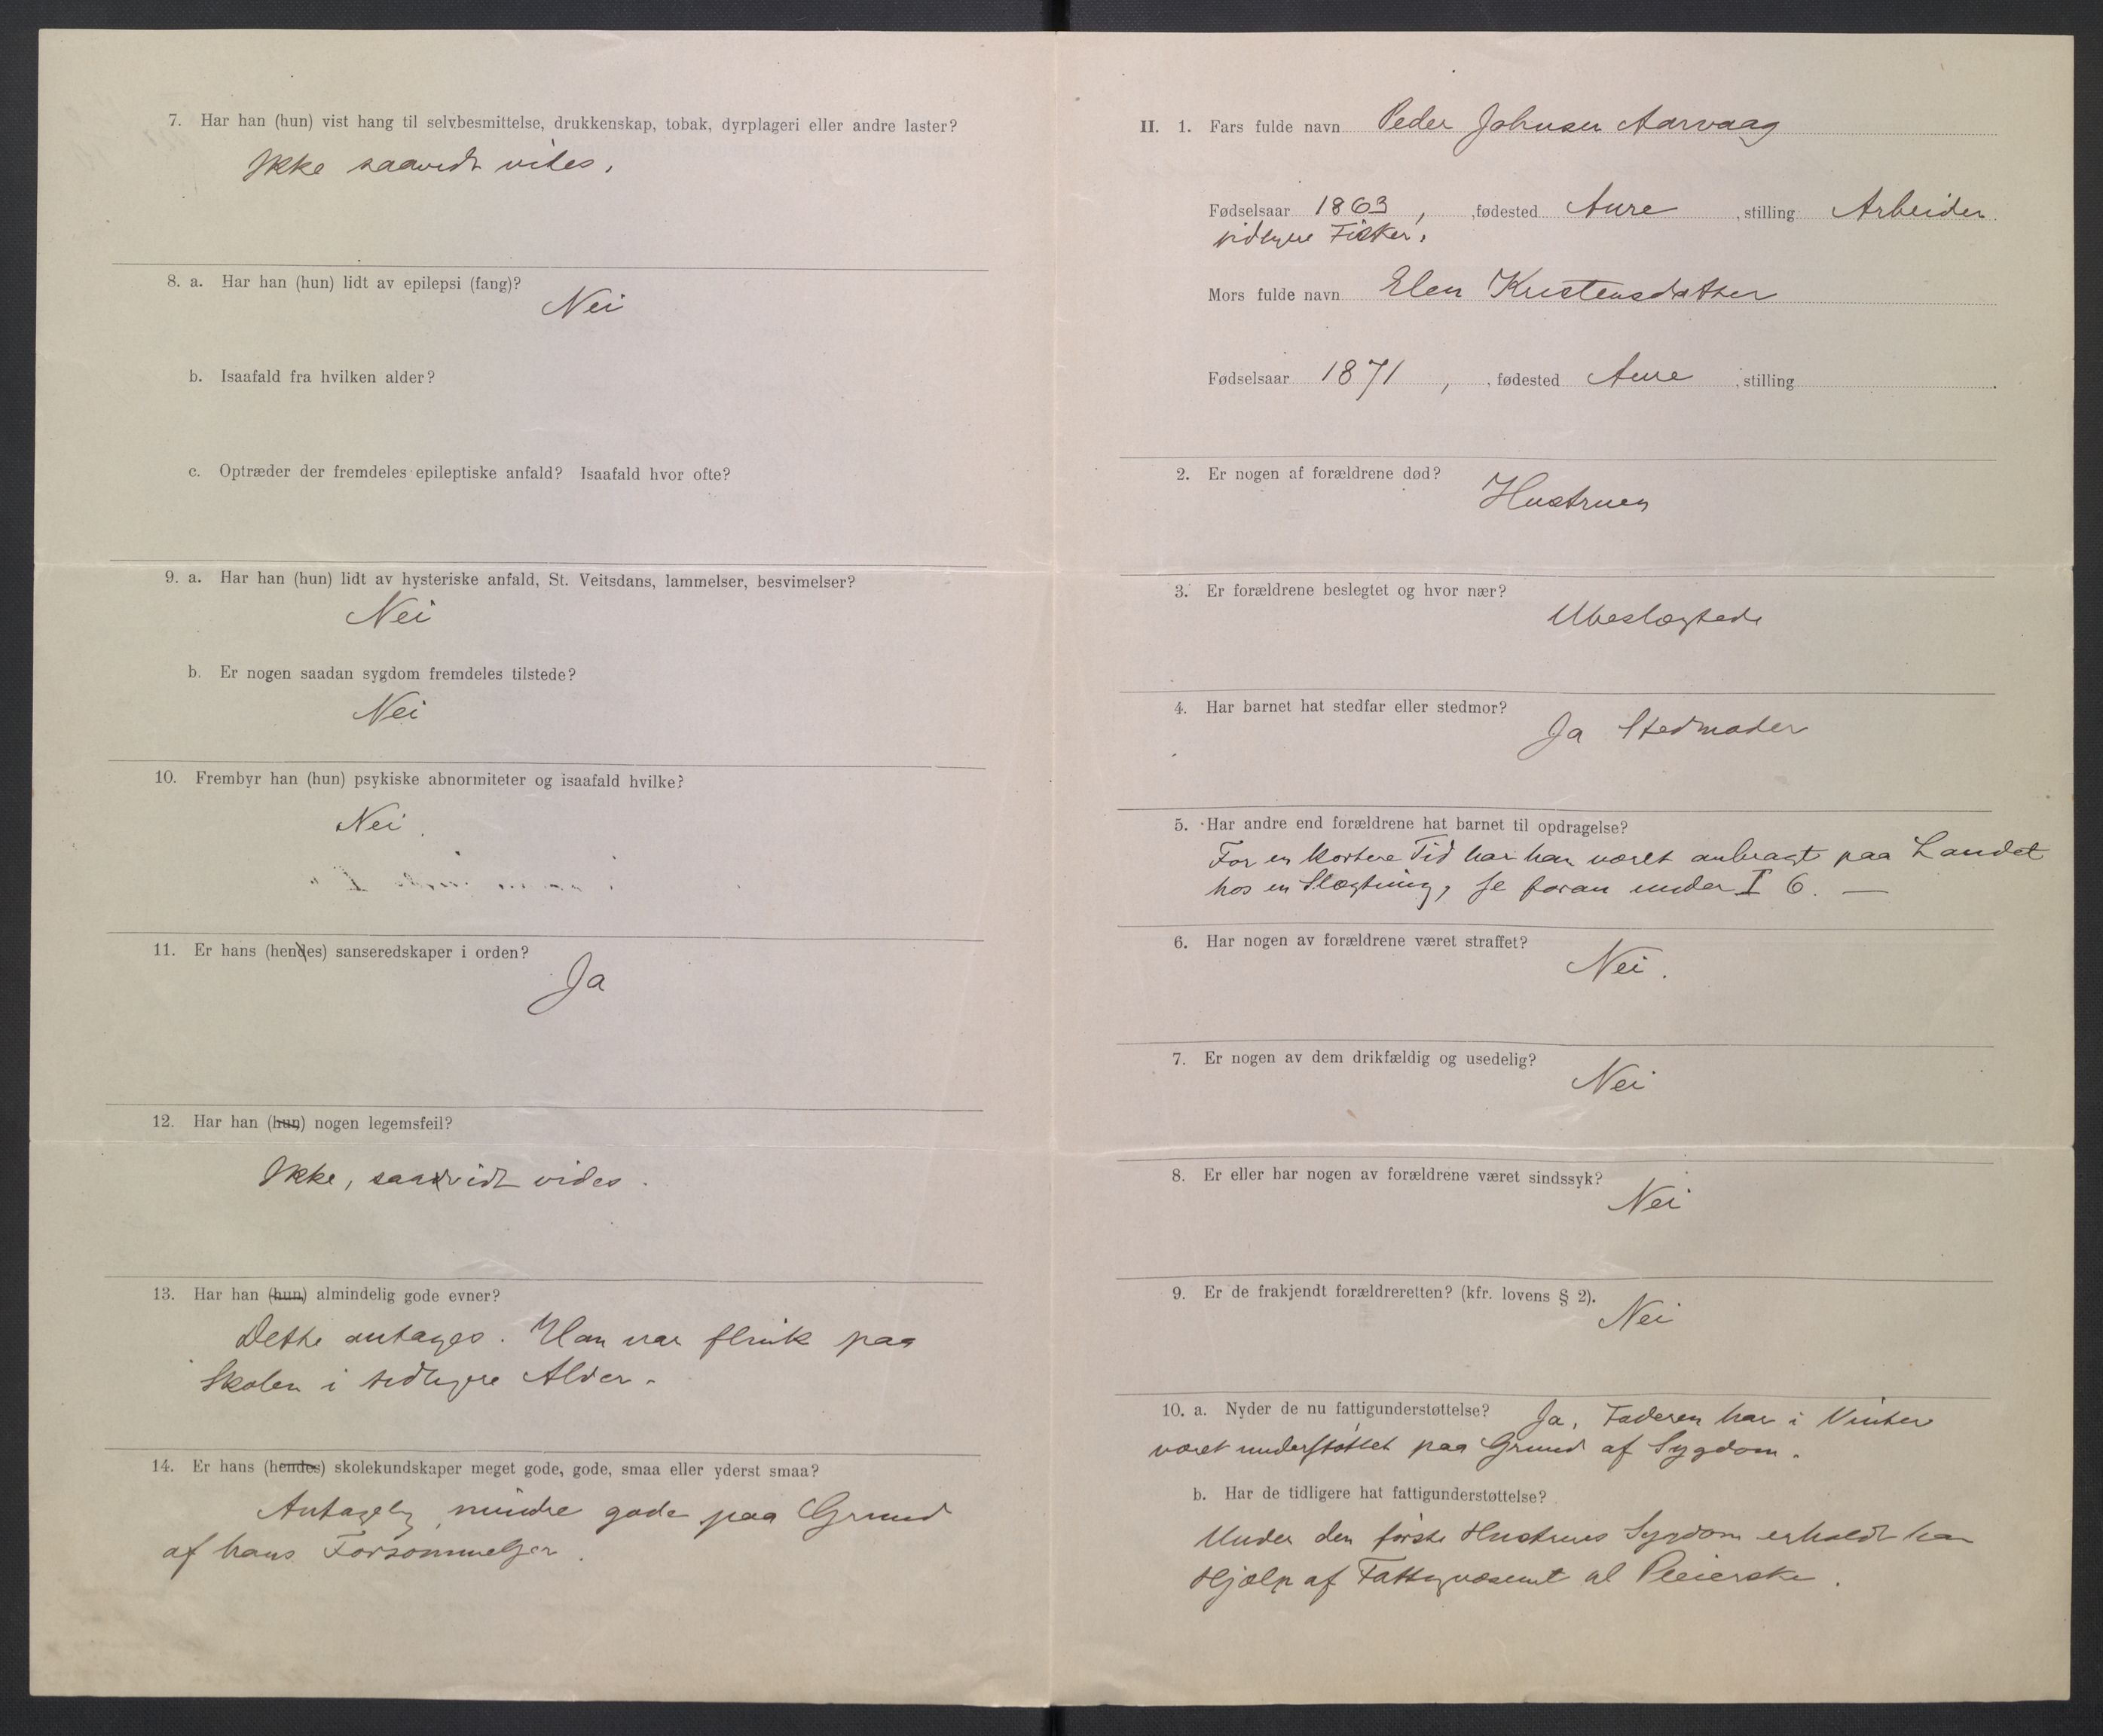 7. Har han (hun) vist hang til selvbesmittelse, drukkenskap, tobak, dyrplageri eller andre laster?
Ikke saavidt vides.
8. a. Har han (hun) lidt av epilepsi (fang)?
Nei
b. Isaafald fra hvilken alder?
c. Optræder der fremdeles epileptiske anfald? Isaafald hvor ofte?
9. a. Har han (hun) lidt av hysteriske anfald, St. Veitsdans, lammelser, besvimelser?
Nei
b. Er nogen saadan sygdom fremdeles tilstede?
Nei
10. Frembyr han (hun) psykiske abnormiteter og isaafald hvilke?
Nei.
11. Er hans (hendes) sanseredskaper i orden?
Ja
12. Har han (hun) nogen legemsfeil?
Ikke, saavidt vides.
13. Har han (hun) almindelig gode evner?
Dette antages. Han var flink paa
Skolen i tidligere Alder.
14. Er hans (hendes) skolekundskaper meget gode, gode, smaa eller yderst smaa?
Antagelig mindre gode paa Grund
af hans Forsømmelser.
II. 1. Fars fulde navn Peder Johnsen Aarvaag
Fødselsaar 1863, fødested Aure, stilling Arbeider
tidligere Fisker.
Mors fulde navn Elen Kristensdatter
Fødselsaar 1871, fødested Aure, stilling
2. Er nogen af forældrene død?
Hustruen
3. Er forældrene beslegtet og hvor nær?
Ubeslægtede
4. Har barnet hat stedfar eller stedmor?
Ja Stedmoder
5. Har andre end forældrene hat barnet til opdragelse?
For en kortere Tid har han været anbragt paa Landet
hos en Slægtning, se foran under I 6. —
6. Har nogen av forældrene været straffet?
Nei.
7. Er nogen av dem drikfældig og usedelig?
Nei
8. Er eller har nogen av forældrene været sindssyk?
Nei
9. Er de frakjendt forældreretten? (kfr. lovens § 2).
Nei
10. a. Nyder de nu fattigunderstøttelse? Ja, Faderen har i Vinter
været understøttet paa Grund af Sygdom.
b. Har de tidligere hat fattigunderstøttelse?
Under den første Hustrues Sygdom erholdt han
Hjælp af Fattigvæsenet til Pleierske.